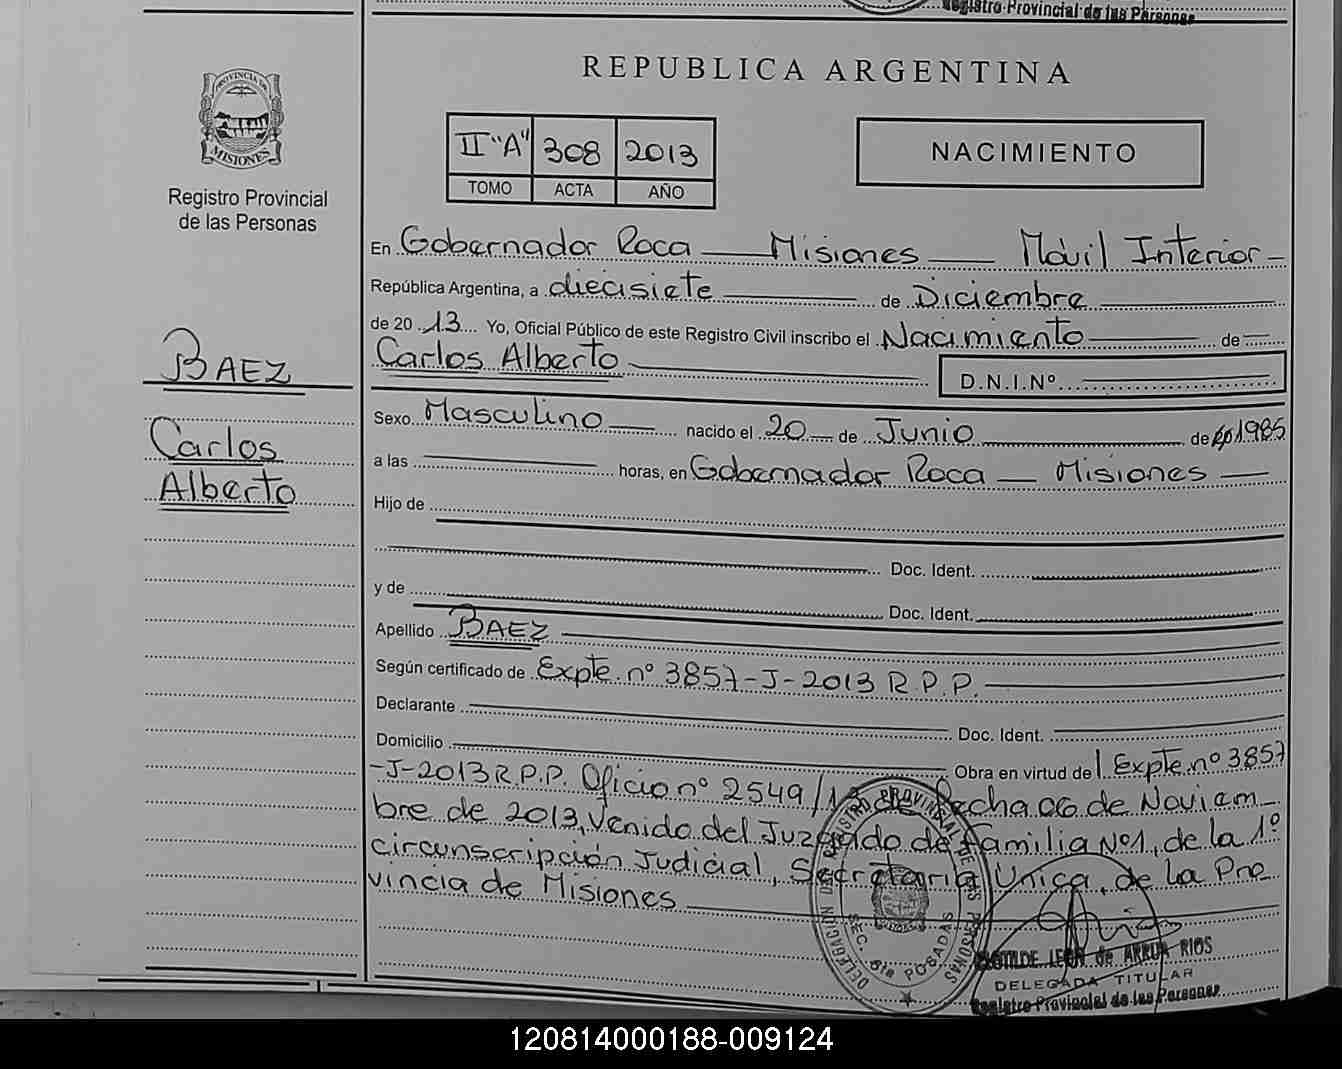 Registro Provincial de las Personas
REPUBLICA ARGENTINA
PROVINCIA DE
MISIONES
Registro Provincial
de las Personas
II "A" 308 2013
TOMO ACTA AÑO
NACIMIENTO
En Gobernador Roca Misiones Móvil Interior
República Argentina, a diecisiete de Diciembre
de 2013 Yo, Oficial Público de este Registro Civil inscribo el Nacimiento de
Carlos Alberto D.N.I.Nº
BAEZ
Carlos
Alberto
Sexo Masculino nacido el 20 de Junio de 1985
a las horas, en Gobernador Roca Misiones
Hijo de
Doc. Ident.
y de
Doc. Ident.
Apellido BAEZ
Según certificado de Expte. nº 3857-J-2013 R.P.P.
Declarante Doc. Ident.
Domicilio Obra en virtud del Expte. nº 3857
-J-2013 R.P.P. Oficio nº 2549/13 de fecha 06 de Noviem
bre de 2013, Venido del Juzgado de Familia Nº1, de la 1º
circunscripción Judicial, Secretaria Unica, de la Pro
vincia de Misiones
DELEGACION DE REGISTRO PROVINCIAL DE LAS PERSONAS
SEC. 6ta POSADAS
de ARRUA RIOS
DELEGADA TITULAR
Registro Provincial de las Personas
120814000188-009124